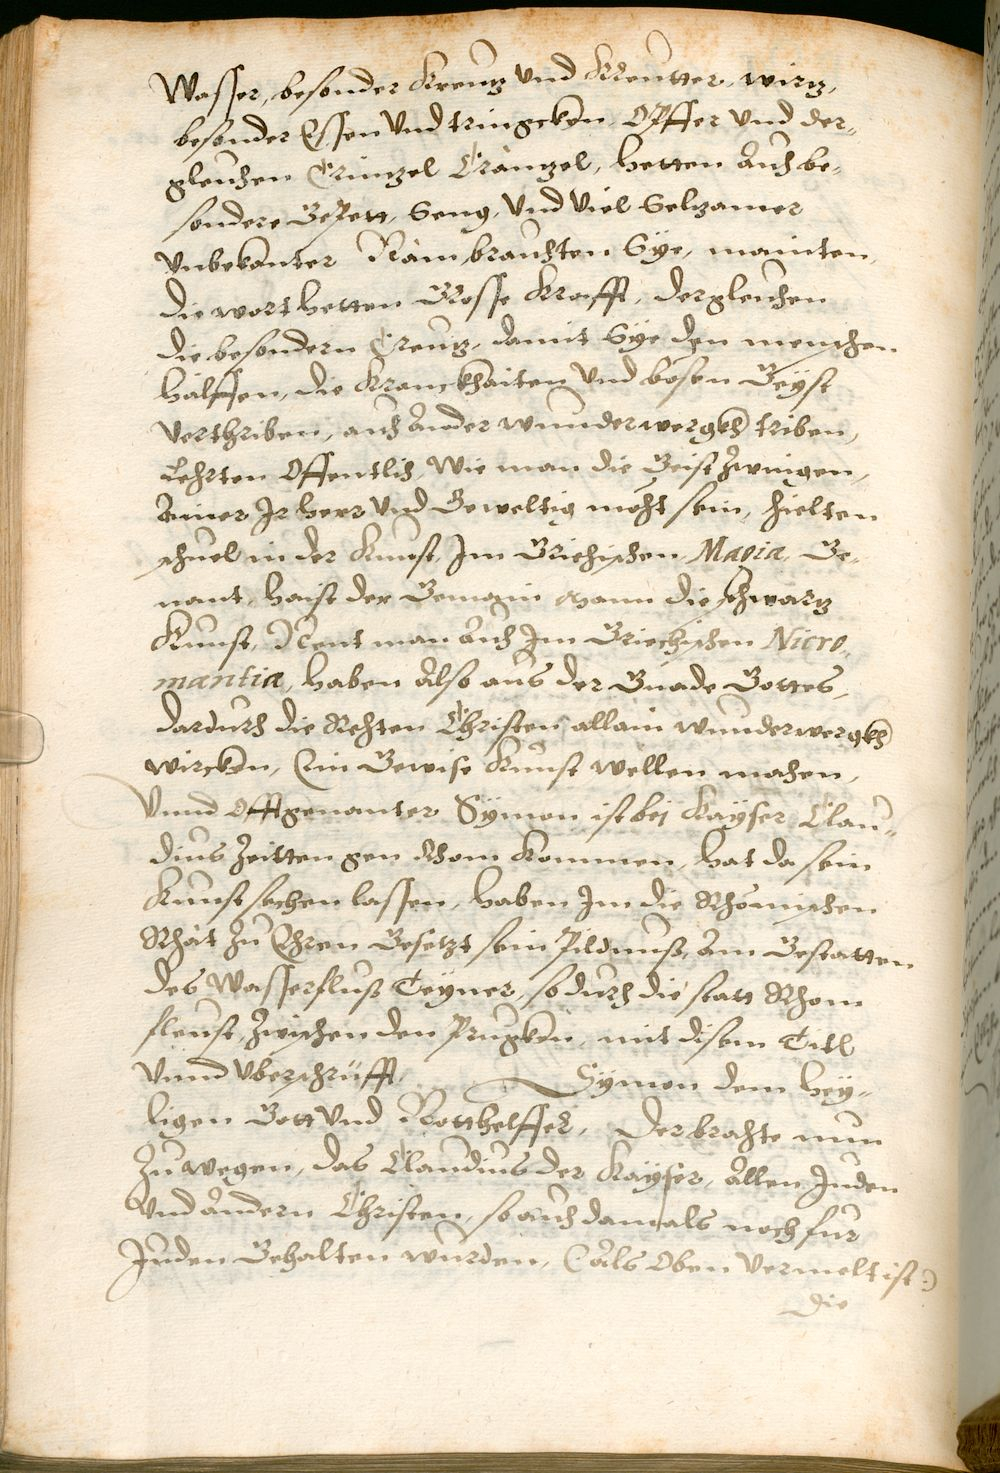 Wasser, besonder Kreutz Und Kreutter, wirtz,
besonder Essen Und tringcken, Opffer Und der-
gleichen Crintzel Crantzel, hetten Auch be-
sondere Gepett, Seng, Und Viel Seltzamer
Unbekanter Näm brauchten Sÿe, mainten,
die wort hetten Grosse Krafft, dergleichen
die besondern Creutz, damit Sÿe den menschen
hälffen, die Kranckhaiten Und bösen Geÿst
Verthriben, auch Ander wunderwergkh triben,
Lehrten Offentlich, Wie man die Geist Zwingen,
Ainer Jr herr Und Geweltig möcht sein, hielten
schuel in der Kunst, Jm Griechischen, Magia, Ge-
nant, haist der Gemain Mann die schwartz
Kunst, Nent man Auch Jm Griechischen Nicro-
mantia, haben Also aus der Gnade Gottes,
dardurch die Rechten Christen allain wunderwergkh
wircken, Ein Gewise Kunst wellen machen,
Unnd Offtgenanter Sÿmon ist bej Kaÿser Clau-
dius Zeitten gen Rhom kommen, hat da sein
Kunst sechen lassen, haben Jm die Rhömischen
Rhät Zu Ehren Gesetzt sein Pildnuß, Am Gestatten
des Wasserfluß Teÿner, so durch die statt Rhom
fleust, Zwischen den Prugken, mit disem Titl
Unnd Uberschrüfft, Sÿmon dem heÿ-
ligen Gott Und Notthelffer, Der brachte nun
Zu wegen, das Claudius der Kaÿser, Allen Juden
Und Andern Christen, so auch damals noch fur
Juden Gehalten wurden, (Als Oben Vermelt ist)
die